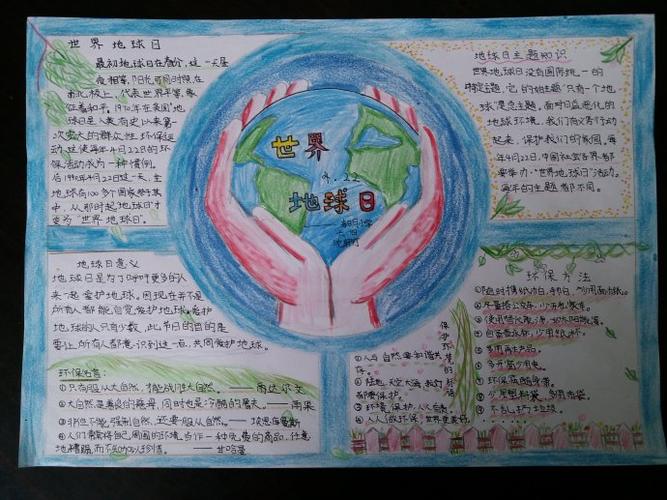 世界地球日
最初地球日在春分,这一天昼
夜相等,阳光可同时照在
南北极上,代表世界平等,象
征着和平。1970年在美国“地
球日是人类有史以来第
一次
众性环保运
动,这使每年4月22日的环
保活动成为一种惯例。
后1990年4月22日这一天,全
球有100多个国家举行其
中,从那时起,地球日才
变为“世界地球日”。
地球日主题知识
世界地球日没有国际统一的
特定主题,它的总主题“只有一个地
球”是总主题。面对日益恶化的
地球环境,我们有义务行动
起来,保护我们的家园,每
年4月22日,中国社会各界都
要举办“世界地球日”活动。
每年的主题都不同。
世界
4.22
地球日
地球日意义
地球日是为了呼吁更多的人
来一起爱护地球,因现在并不是
所有人都能自觉爱护地球,爱护
地球的人只有少数,此节日的目的是
要让所有人都意识到这一点,共同爱护地球。
环保名言:
①只有服从大自然,才能战胜大自然。——雨达尔文
②大自然是善良的慈母,同时也是冷酷的屠夫。——雨果
③非但不能强制自然,还要服从自然。——埃思库罗斯
④人们常常将自己周围的环境当作一种免费的商品,任意
地糟蹋而不知加以珍惜。——甘哈曼
保护环境的标语
①人与自然要和谐共
存。
②陆地、天空、大海,我们
都要保护。
③环境保护,人人有责。
④人人做环保,世界更美好。
环保方法
①随时携帕,少用面巾纸。
②尽量搭公交车,少开私家车。
③使用替代能源,如太阳能等。
④自备着水杯,少用纸杯。
⑤多用再生产品。
⑥多开窗少用电。
⑦环保从随身带。
⑧少用塑料袋,多用布袋。
⑨不乱扔垃圾。